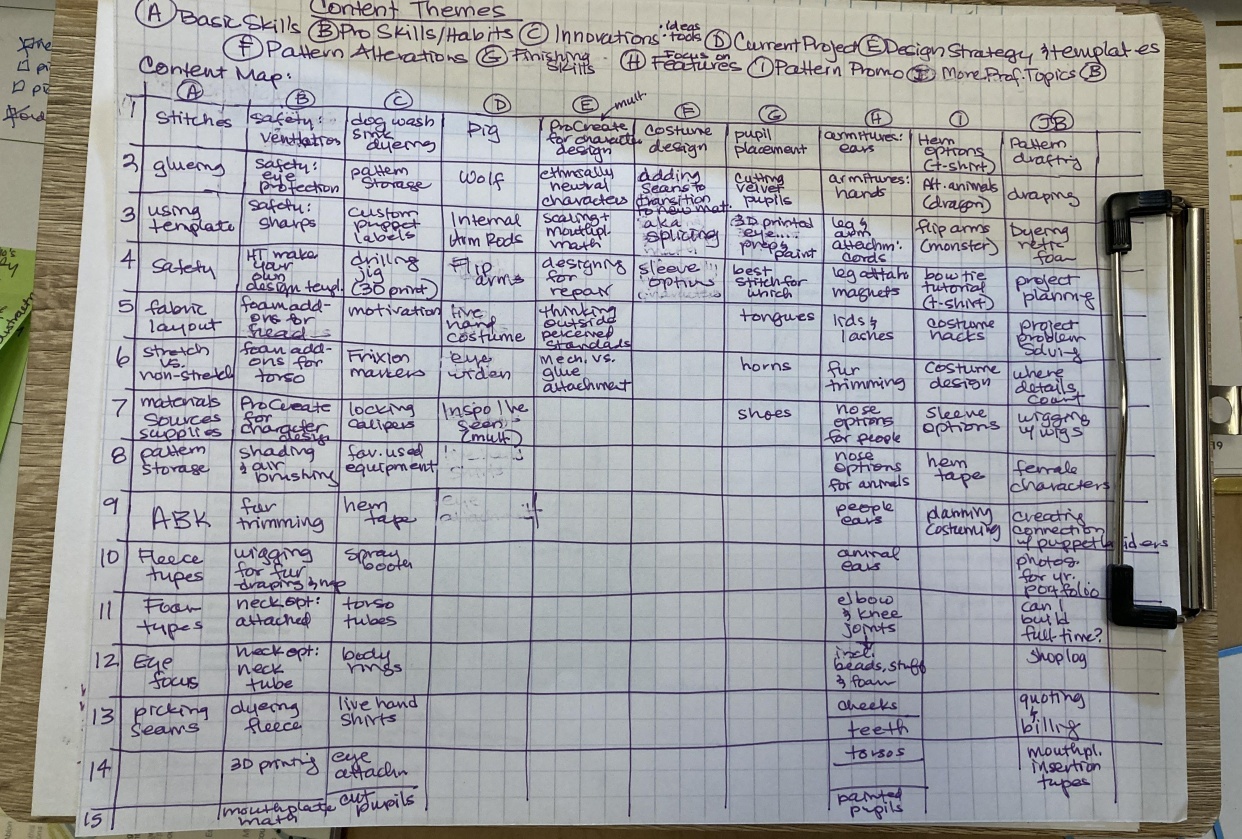 Content Themes
Ⓐ Basic Skills Ⓑ Pro Skills/Habits Ⓒ Innovations: ideas tools Ⓓ Current Project Ⓔ Design Strategy & templates
Ⓕ Pattern Alterations Ⓖ Finishing Skills Ⓗ Focus on Features Ⓘ Pattern Promo Ⓙ More Prof. Topics Ⓑ
Content Map:
Ⓐ Ⓑ Ⓒ Ⓓ Ⓔ mult. Ⓕ Ⓖ Ⓗ Ⓘ JB
1 Stitches | safety: ventilation | dog wash sink dyeing | Pig | ProCreate for character design | costume design | pupil placement | armitures: ears | Hem options (t-shirt) | Pattern drafting
2 glueing | safety: eye protection | pattern storage | Wolf | ethnically neutral characters | adding seams to transition to new mat. | cutting velvet pupils | armitures: hands | Alt. animals (dragon) | draping
3 using template | safety: sharps | custom puppet labels | Internal Arm Rods | scaling + mouthpl. math | aka splicing | 3D printed eye.... prep & paint | leg & arm attachm: cords | flip arms (monster) | Dyeing retic foam
4 Safety | HT make your own design templ. | drilling jig (3D print) | Flip arms | designing for repair | sleeve options | best stitch for which | leg attach magnets | bow tie tutorial (t-shirt) | project planning
5 fabric layout | foam add-ons for head | motivation | live hand costume | thinking outside perceived standads | tongues | lids & lashes | costume hacks | project problem solving
6 stretch vs. non-stretch | foam add-ons for torso | Frixion markers | eye | mech. vs. glue attachment | horns | fur trimming | costume design | where details count
7 materials sources supplies | ProCreate for character design | locking calipers | Inspo I've seen (mult) | shoes | nose options for people | sleeve options | wigging w/ wigs
8 pattern storage | shading & air brushing | fav. used equipment | nose options for animals | hem tape | female characters
9 ABK | fur trimming | hem tape | people ears | planning costuming | creating connection w/ puppet builders
10 Fleece types | wigging for fur draping & nap | spray booth | animal ears | photos for yr. portfolio
11 Foam types | neck opt: attached | torso tubes | elbow & knee joints | can I build full-time?
12 Eye focus | neck opt: neck tube | body rings | incl. beads, stuff & foam | shop log
13 picking seams | dyeing fleece | live hand shirts | cheeks | teeth | quoting & billing
14 3D printing | eye attachm | torsos | mouthpl. insertion types
15 mouthplate math | cut pupils | painted pupils
19